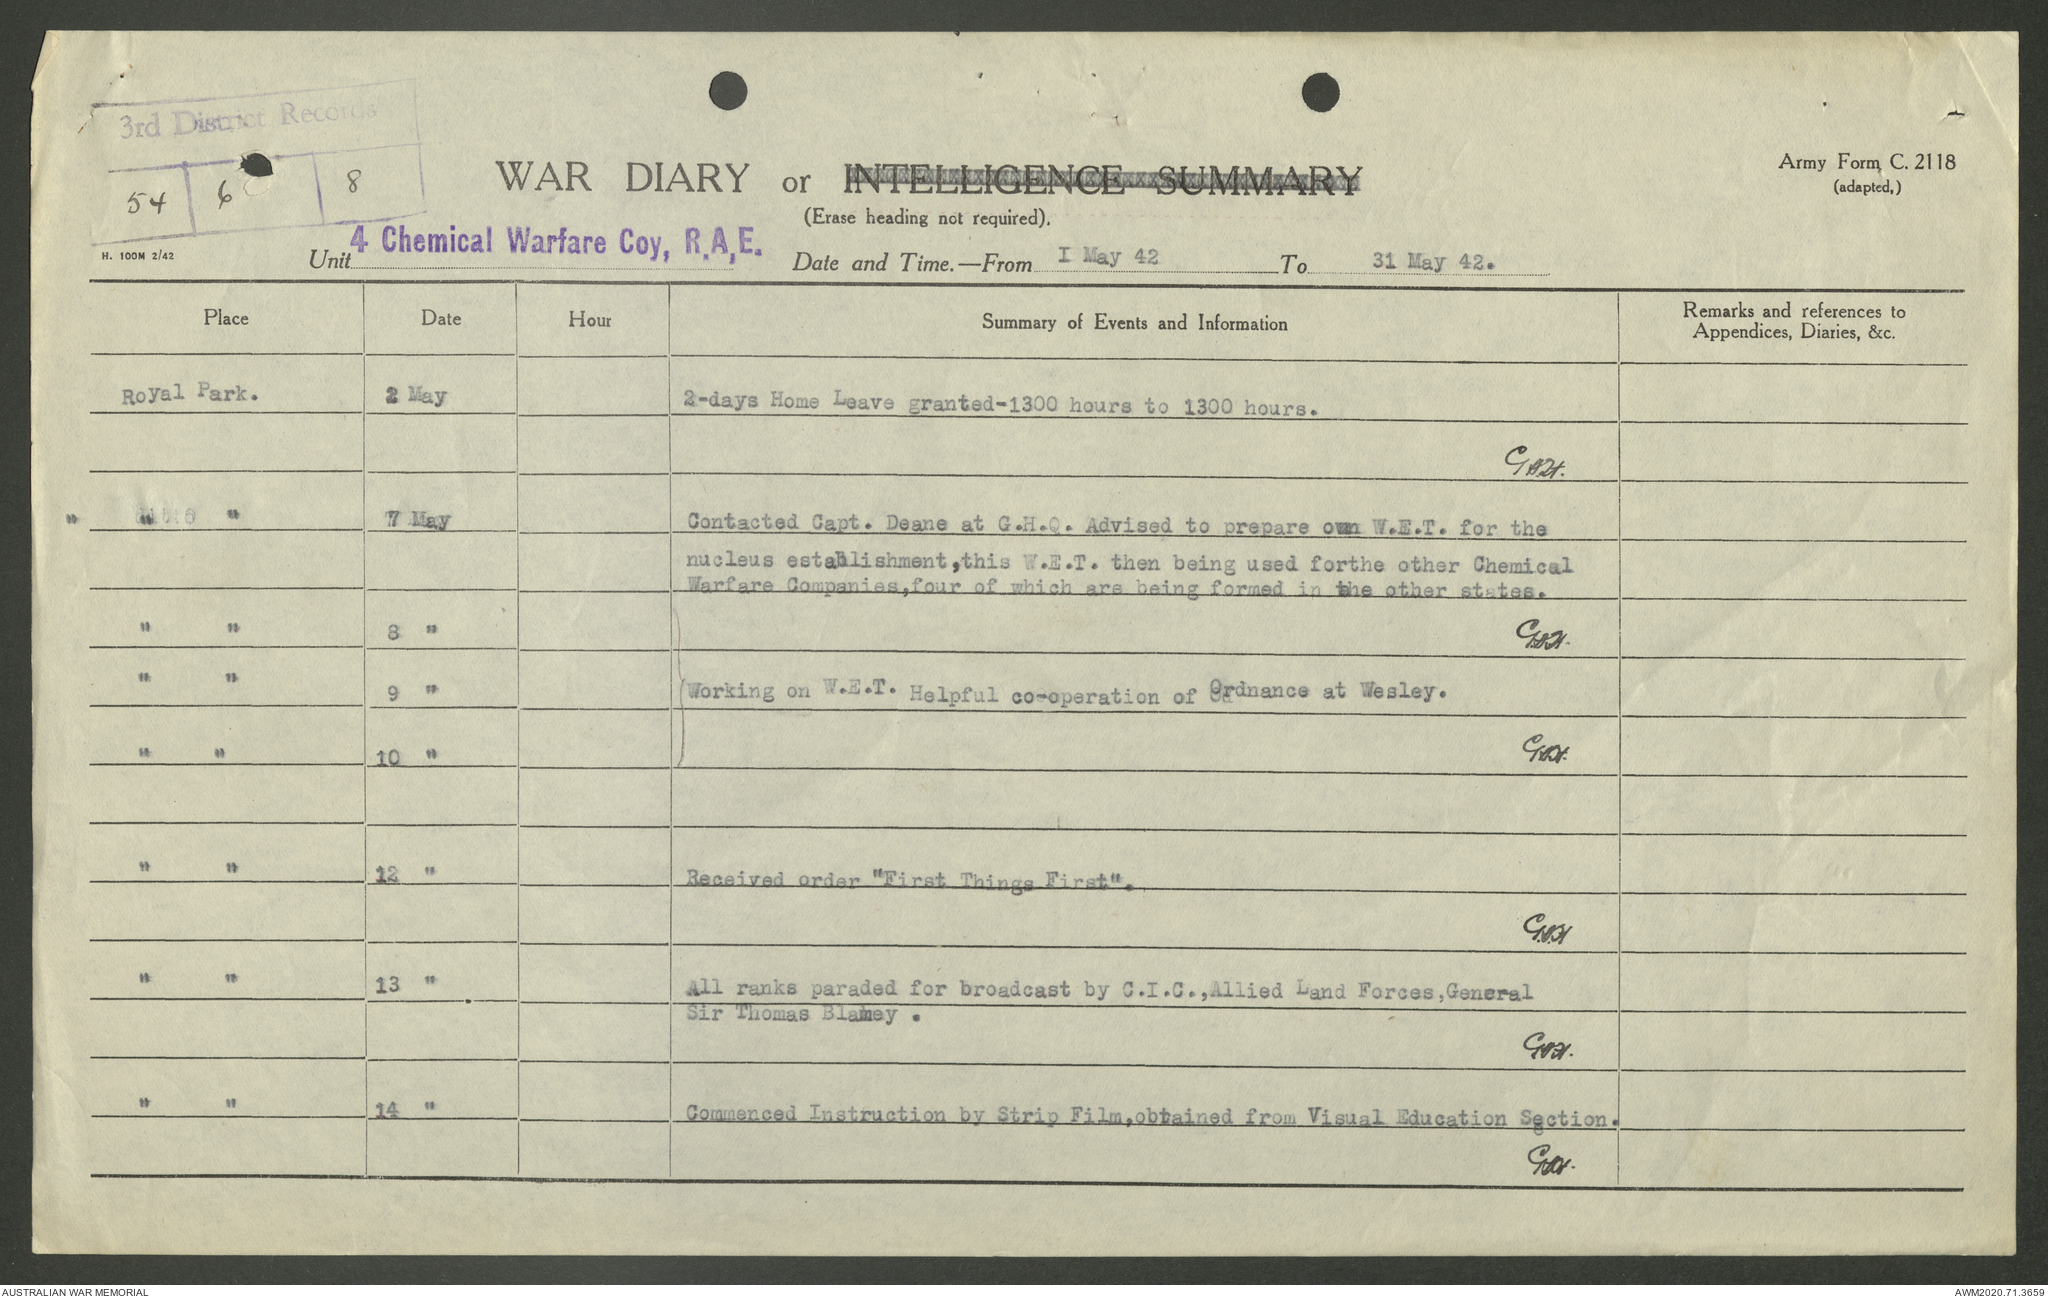 3rd District Records
54 6 8
WAR DIARY or INTELLIGENCE SUMMARY
(Erase heading not required).
Army Form C. 2118
(adapted,)
H. 100M 2/42
Unit 4 Chemical Warfare Coy, R.A,E. Date and Time.—From I May 42 To 31 May 42.
Place Date Hour Summary of Events and Information Remarks and references to
Appendices, Diaries, &c.
Royal Park. 2 May 2-days Home Leave granted-1300 hours to 1300 hours.
" " " 7 May Contacted Capt. Deane at G.H.Q. Advised to prepare own W.E.T. for the
nucleus establishment,this W.E.T. then being used forthe other Chemical
Warfare Companies,four of which are being formed in the other states.
" " 8 "
" " 9 " Working on W.E.T. Helpful co-operation of Ordnance at Wesley.
" " 10 "
" " 12 " Received order "First Things First".
" " 13 " All ranks paraded for broadcast by C.I.C.,Allied Land Forces,General
Sir Thomas Blamey .
" " 14 " Commenced Instruction by Strip Film,obtained from Visual Education Section.
AUSTRALIAN WAR MEMORIAL AWM2020.71.3659